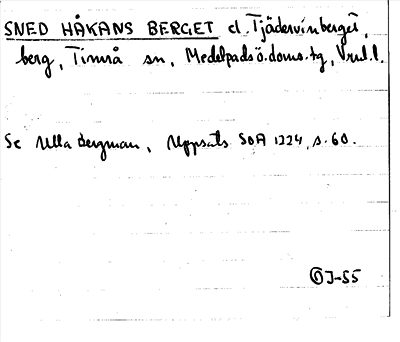 SNED HÅKANS BERGET el. Tjädervinberget,
berg, Timrå sn, Medelpads ö. doms. tg, Vnl. l.
Se Ulla Bergman, Uppsats SOA 1224, s. 60.
J-55